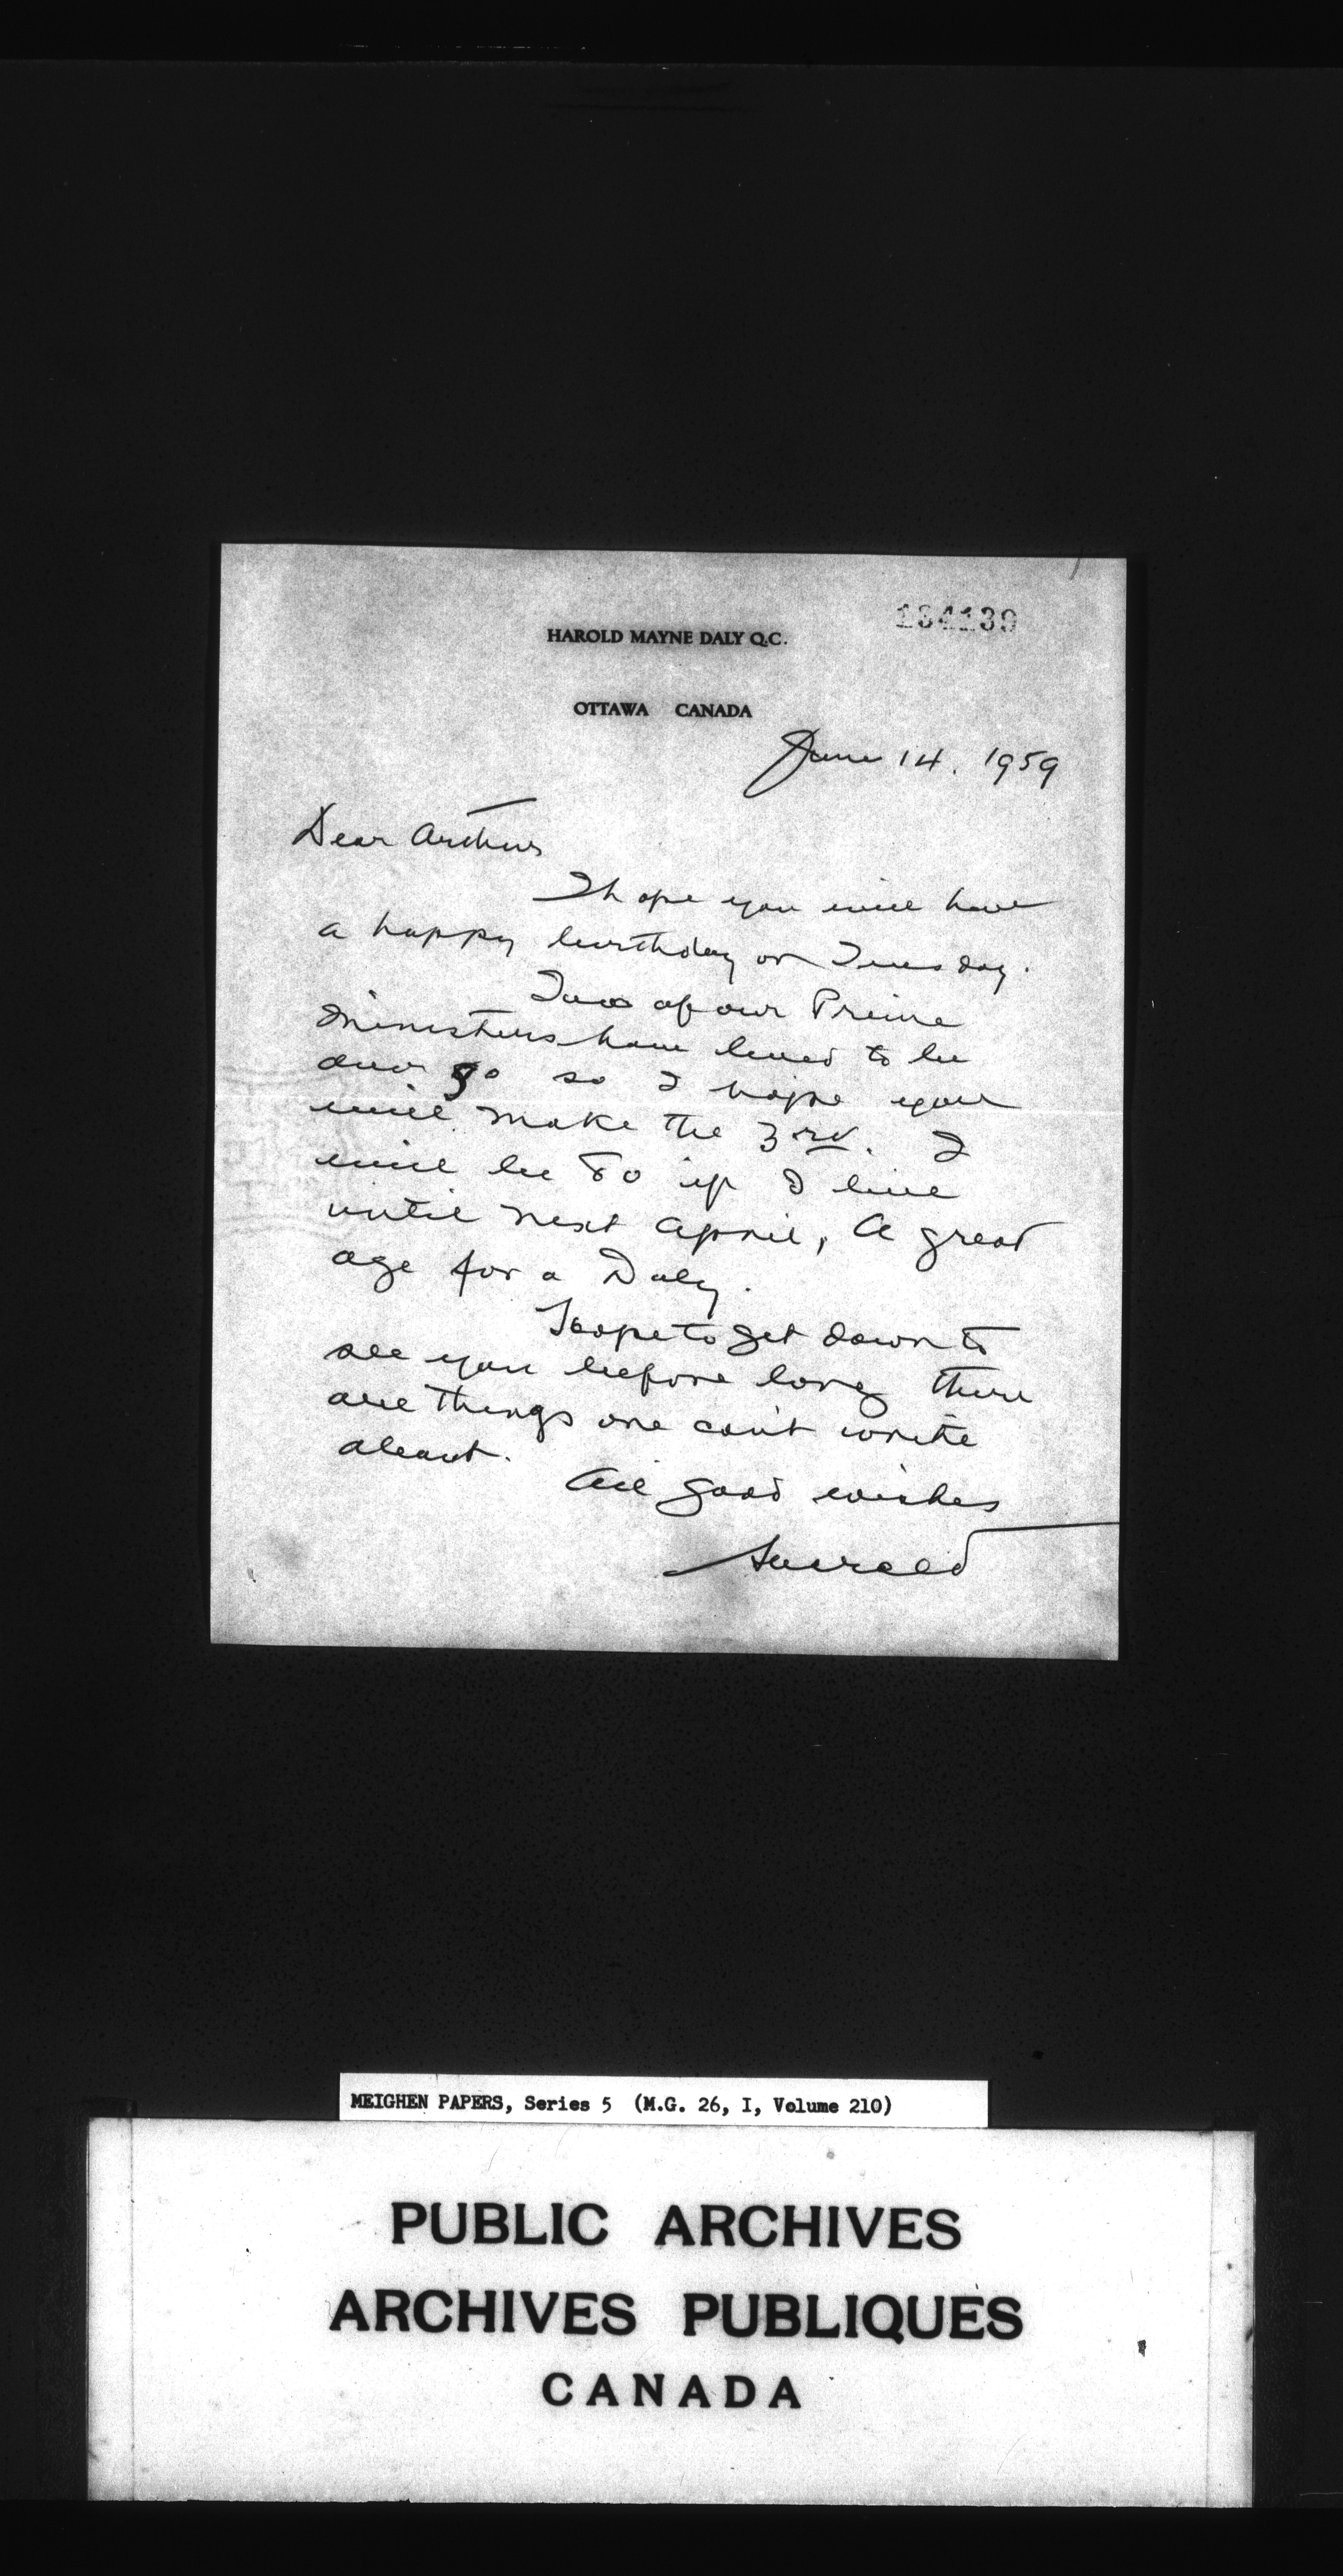 134139
HAROLD MAYNE DALY Q.C.
OTTAWA CANADA
June 14. 1959
Dear Arthur
I hope you will have
a happy birthday on Tuesday.
Two of our Prime
Ministers have lived to be
over 90 so I hope you
will make the 3rd. I
will be 80 if I live
until next April, A great
age for a Daly.
I hope to get down to
see you before long there
are things one can't write
about.
All good wishes
Harold
MEIGHEN PAPERS, Series 5 (M.G. 26, I, Volume 210)
PUBLIC ARCHIVES
ARCHIVES PUBLIQUES
CANADA